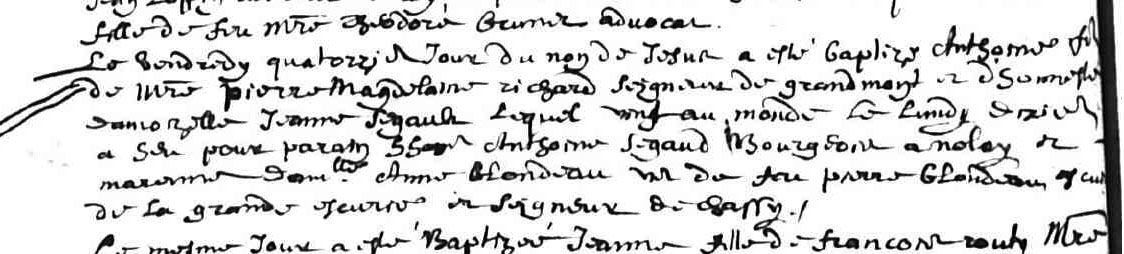 fille de feu Mre Theodore Brunet advocat.
Le Vendredy quatorzie Jour du nom de Jesus a esté baptizé Anthoine fil
de Mre pierre Magdelaine richard seigneur de grandmont et d'honneste
damoizelle Jeanne Segault Lequel vint au monde Le Lundy
a heu pour parain Anthoine Segaud Bourgeois a nolay et
maraine damlle Anne Blondeau de feu pierre Blondeau escu
de La grande escurie et seigneur de chassy./
Le mesme Jour a esté Baptizeé Jeanne fille de francois Mre